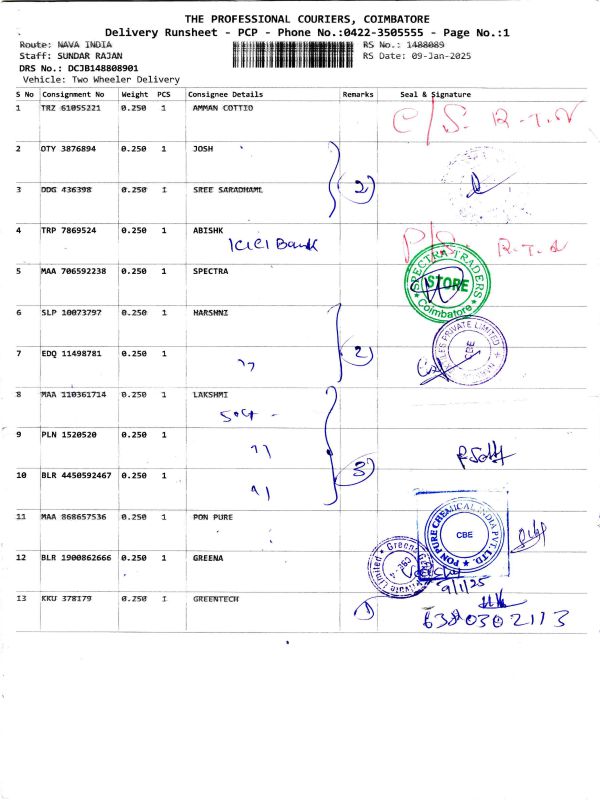 THE PROFESSIONAL COURIERS, COIMBATORE
Delivery Runsheet - PCP - Phone No.:0422-3505555 - Page No.:1
Route: NAVA INDIA
RS No.: 1488089
Staff: SUNDAR RAJAN
RS Date: 09-Jan-2025
DRS No.: DCJB148808901
Vehicle: Two Wheeler Delivery
S No Consignment No Weight PCS Consignee Details Remarks Seal & Signature
1 TRZ 61055221 0.250 1 AMMAN COTTIO
C/S. R.T.N
2 OTY 3876894 0.250 1 JOSH
2
3 DDG 436398 0.250 1 SREE SARADHAML
4 TRP 7869524 0.250 1 ABISHK
ICICI Bank
R.T.N
5 MAA 706592238 0.250 1 SPECTRA
SPECTRA TRADERS
STORE
Coimbatore
6 SLP 10073797 0.250 1 HARSHNI
PRIVATE LIMITED
CBE
7 EDQ 11498781 0.250 1 ,,
2
8 MAA 110361714 0.250 1 LAKSHMI
9 PLN 1520520 0.250 1 ,,
10 BLR 4450592467 0.250 1 ,,
3
11 MAA 868657536 0.250 1 PON PURE
PON PURE CHEMICAL INDIA PVT LTD.
CBE
12 BLR 1900862666 0.250 1 GREENA
Greena
Private Limited
9/1/25
13 KKU 378179 0.250 1 GREENTECH
1
6380302113